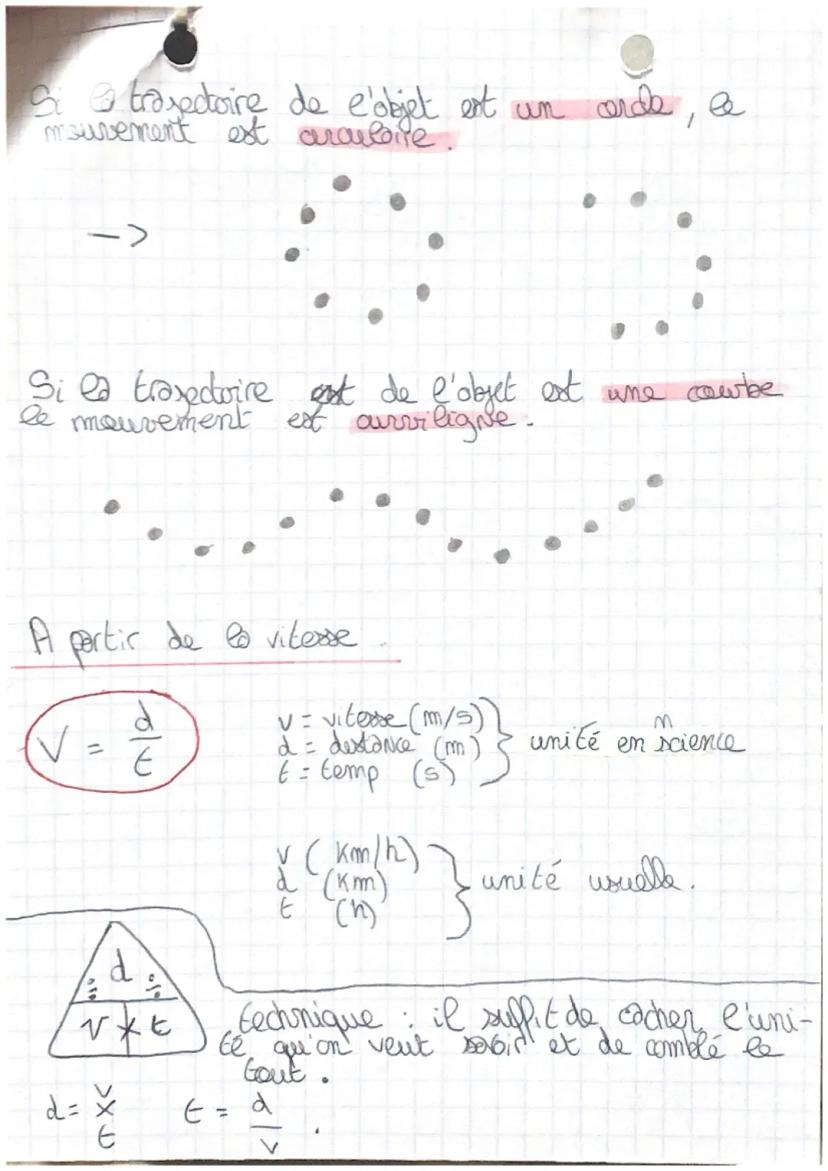 Si la trajectoire de l'objet est un cercle, le
mouvement est circulaire.
->
Si la trajectoire est de l'objet est une courbe
le mouvement est curviligne.
A partir de la vitesse.
V = d/t
v = vitesse (m/s)
d = distance (m)
t = temp (s)
unité en science
v (km/h)
d (km)
t (h)
unité usuelle.
÷ d ÷
v × t
technique : il suffit de cacher l'uni-
té qu'on veut savoir et de comblé le
tout.
d = v × t
t = d/v.